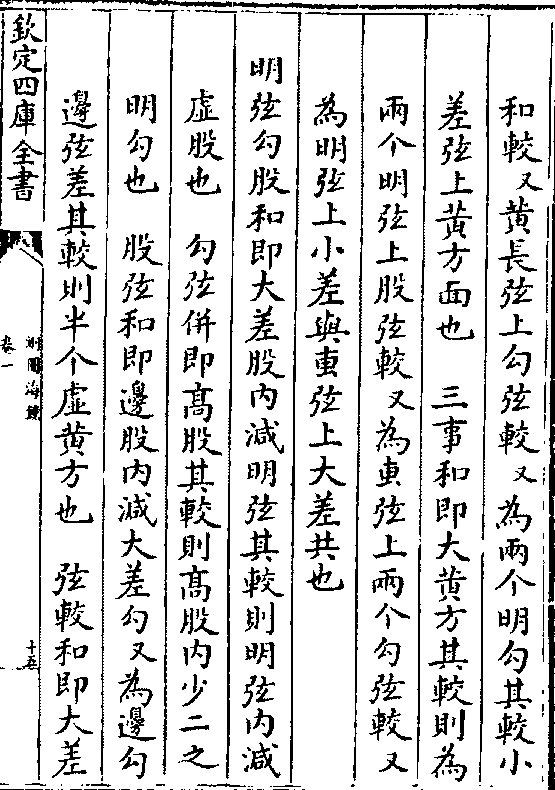 和較又黃長弦上勾弦較又為兩个明勾其較小
差弦上黃方面也　三事和即大黃方其較則為
兩个明弦上股弦較又為叀弦上兩个勾弦較又
為明弦上小差與叀弦上大差共也
明弦勾股和即大差股內減明弦其較則明弦內減
虛股也　勾弦併即髙股其較則髙股內少二之
明勾也　股弦和即邊股內減大差勾又為邊勾
邊弦差其較則半个虛黃方也　弦較和即大差
欽定四庫全書
測圓海鏡
卷一
十五